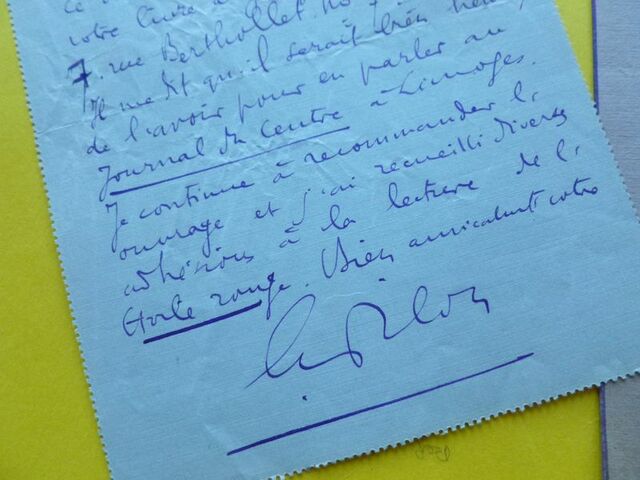 votre livre à
7. rue Berthollet. No 7
Il me dit qu'il serait bien heureux
de l'avoir pour en parler au
Journal du Centre à Limoges.
Je continue à recommander l'
ouvrage et j'ai recueilli diverses
adhésions à la lecture de l'
Etoile rouge. Bien amicalement votre